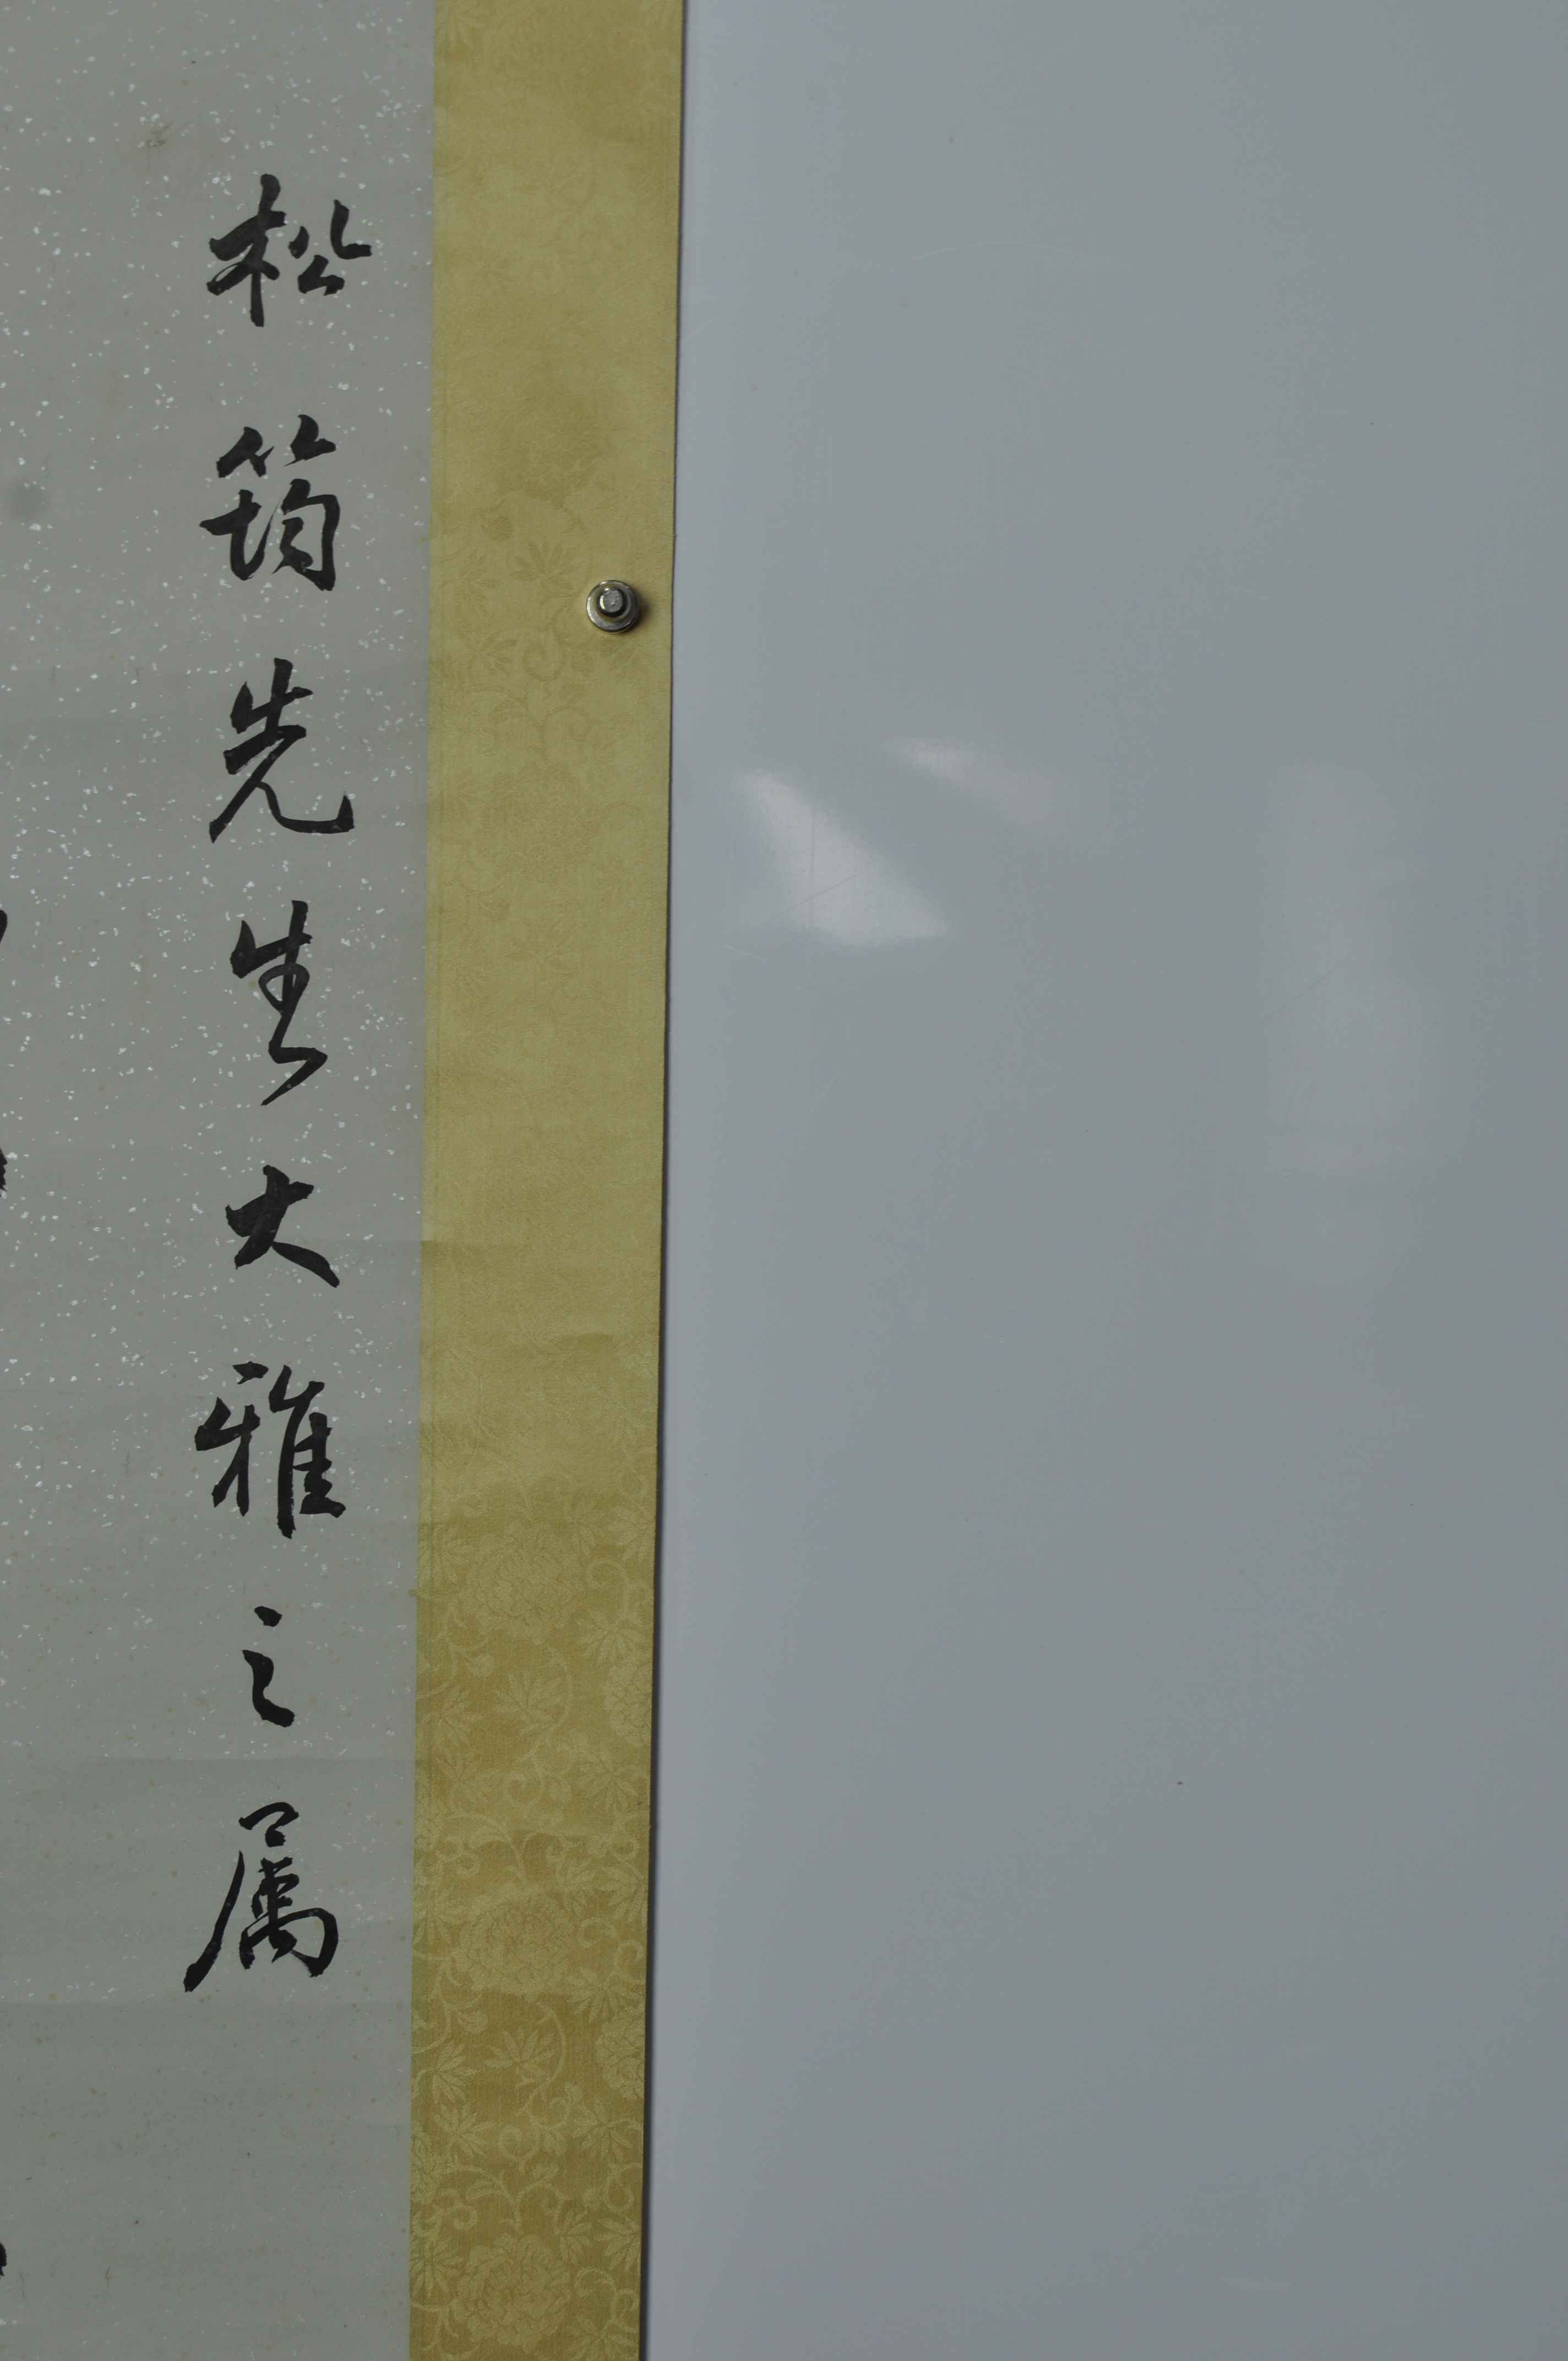 松筠先生大雅之属